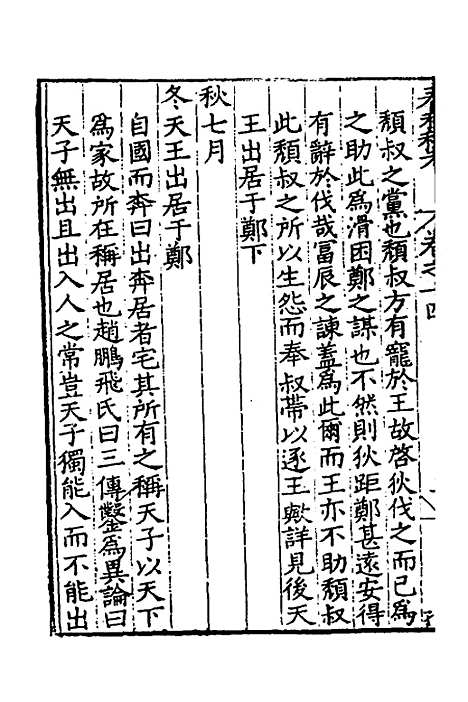 頽叔之黨也頽叔方有寵於王故啓狄伐之而已為
之助此為滑困鄭之謀也不然則狄距鄭甚遠安得
有辭於伐哉富辰之諫蓋為此爾而王亦不助頽叔
此頽叔之所以生怨而奉叔帶以逐王歟詳見後天
王出居于鄭下
秋七月
冬天王出居于鄭
自國而奔曰出奔居者宅其所有之稱天子以天下
為家故所在稱居也趙鵬飛氏曰三傳鑿為異論曰
天子無出且出入人之常豈天子獨能入而不能出